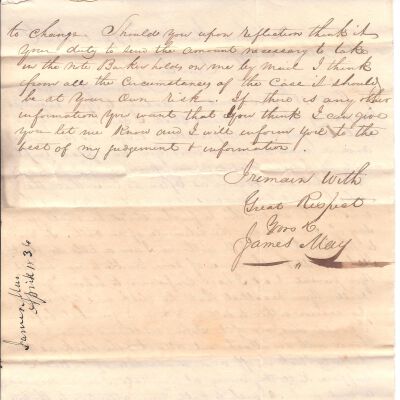 to change. Should you upon reflection think it
Your duty to send the amount necessary to take
in the note Barker holds on me by mail I think
from all the Circumstances of the Case it should
be at Your Own risk. If there is any other
information You want that You think I can give
you let me know and I will inform you to the
best of my judgement & information.
I remain With
Great Respect
Yours &c.
James May
James May
April 11 36